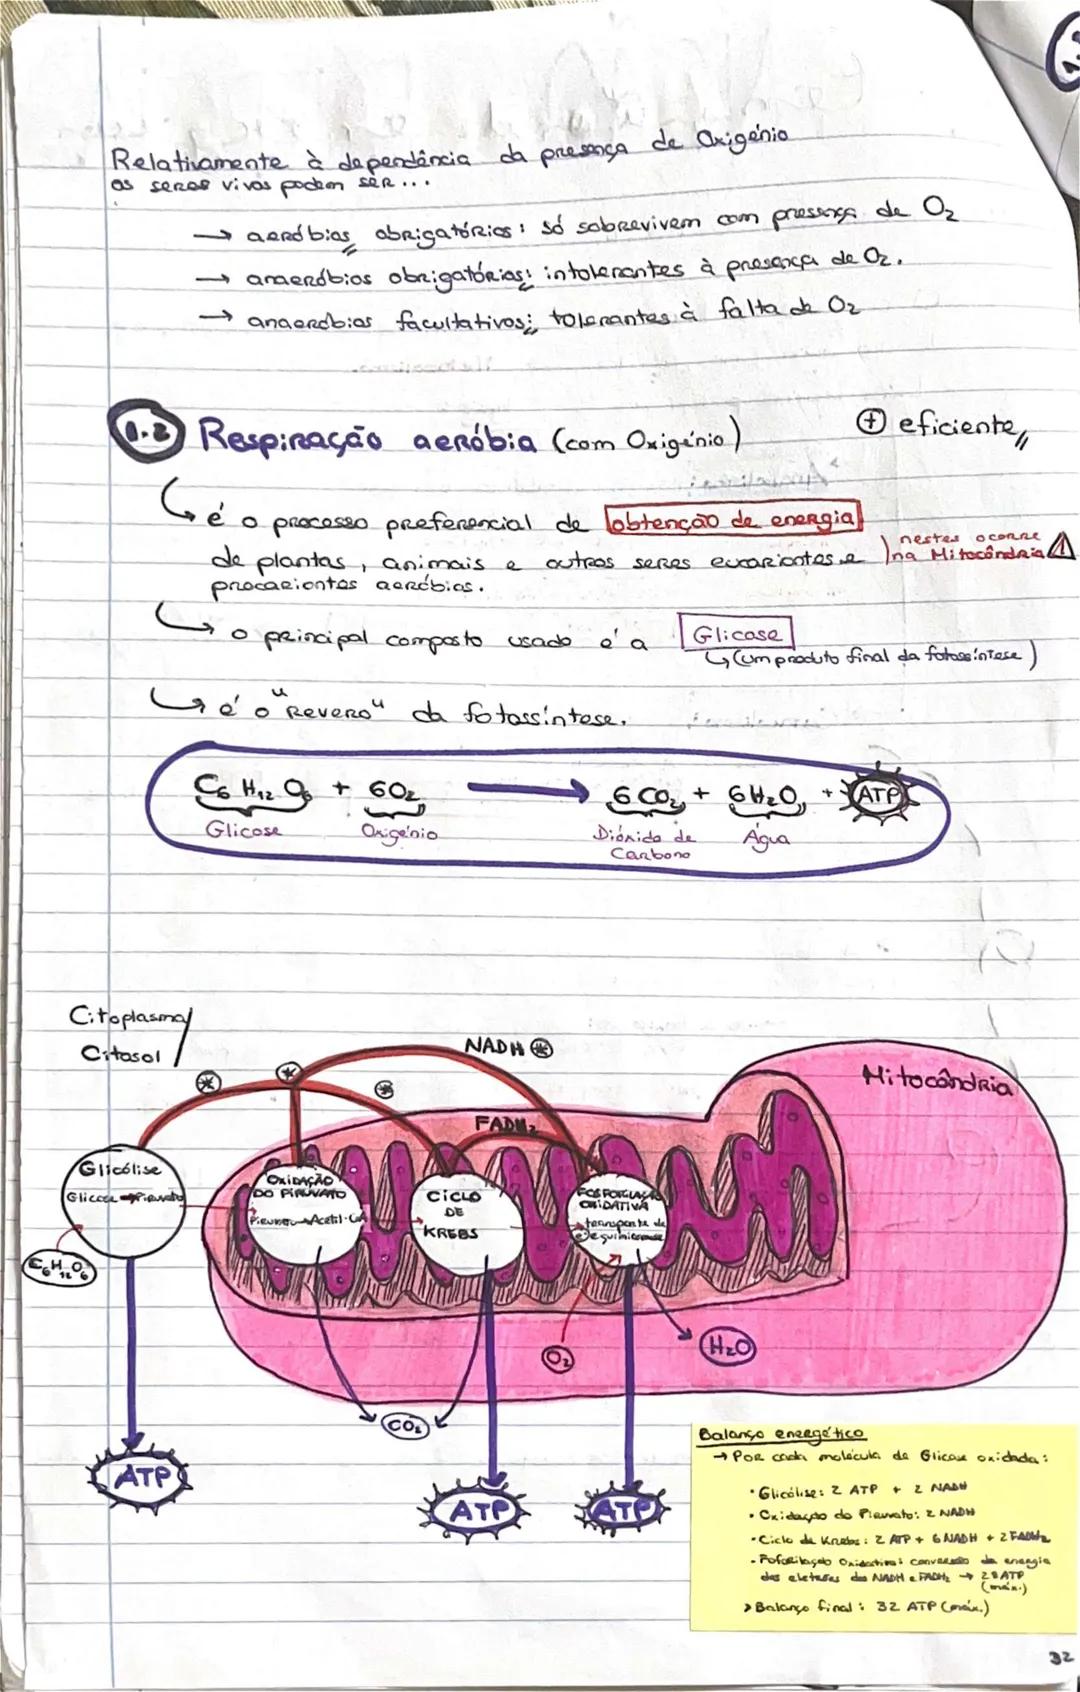 Relativamente à dependência da presença de Oxigénio
os seres vivos podem ser...
→ aeróbios obrigatórios: só sobrevivem com presença de O₂
→ anaeróbios obrigatórios: intolerantes à presença de O₂.
→ anaeróbios facultativos: tolerantes à falta de O₂
1.2 Respiração aeróbia (com Oxigénio) + eficiente
é o processo preferencial de obtenção de energia
de plantas, animais e outros seres eucariontes e
nestes ocorre
na Mitocôndria
procariontes aeróbios.
o principal composto usado é a Glicose
(um produto final da fotossíntese)
é o "Reverso" da fotossíntese.
C₆H₁₂O₆ + 6O₂ → 6CO₂ + 6H₂O + ATP
Glicose Oxigénio Dióxido de Água
Carbono
Citoplasma/
Citosol
NADH
Mitocôndria
FADH₂
Glicólise
Glicose → Piruvato
C₆H₁₂O₆
OXIDAÇÃO
DO PIRUVATO
Piruvato → Acetil-CoA
CICLO
DE
KREBS
FOSFORILAÇÃO
OXIDATIVA
transporte de
e⁻ e quimiosmose
O₂
H₂O
CO₂
ATP
ATP
ATP
Balanço energético
→ Por cada molécula de Glicose oxidada:
• Glicólise: 2 ATP + 2 NADH
• Oxidação do Piruvato: 2 NADH
• Ciclo de Krebs: 2 ATP + 6 NADH + 2 FADH₂
• Fosforilação Oxidativa: conversão da energia
dos eletrões do NADH e FADH₂ → 28 ATP
(máx.)
> Balanço final: 32 ATP (máx.)
32